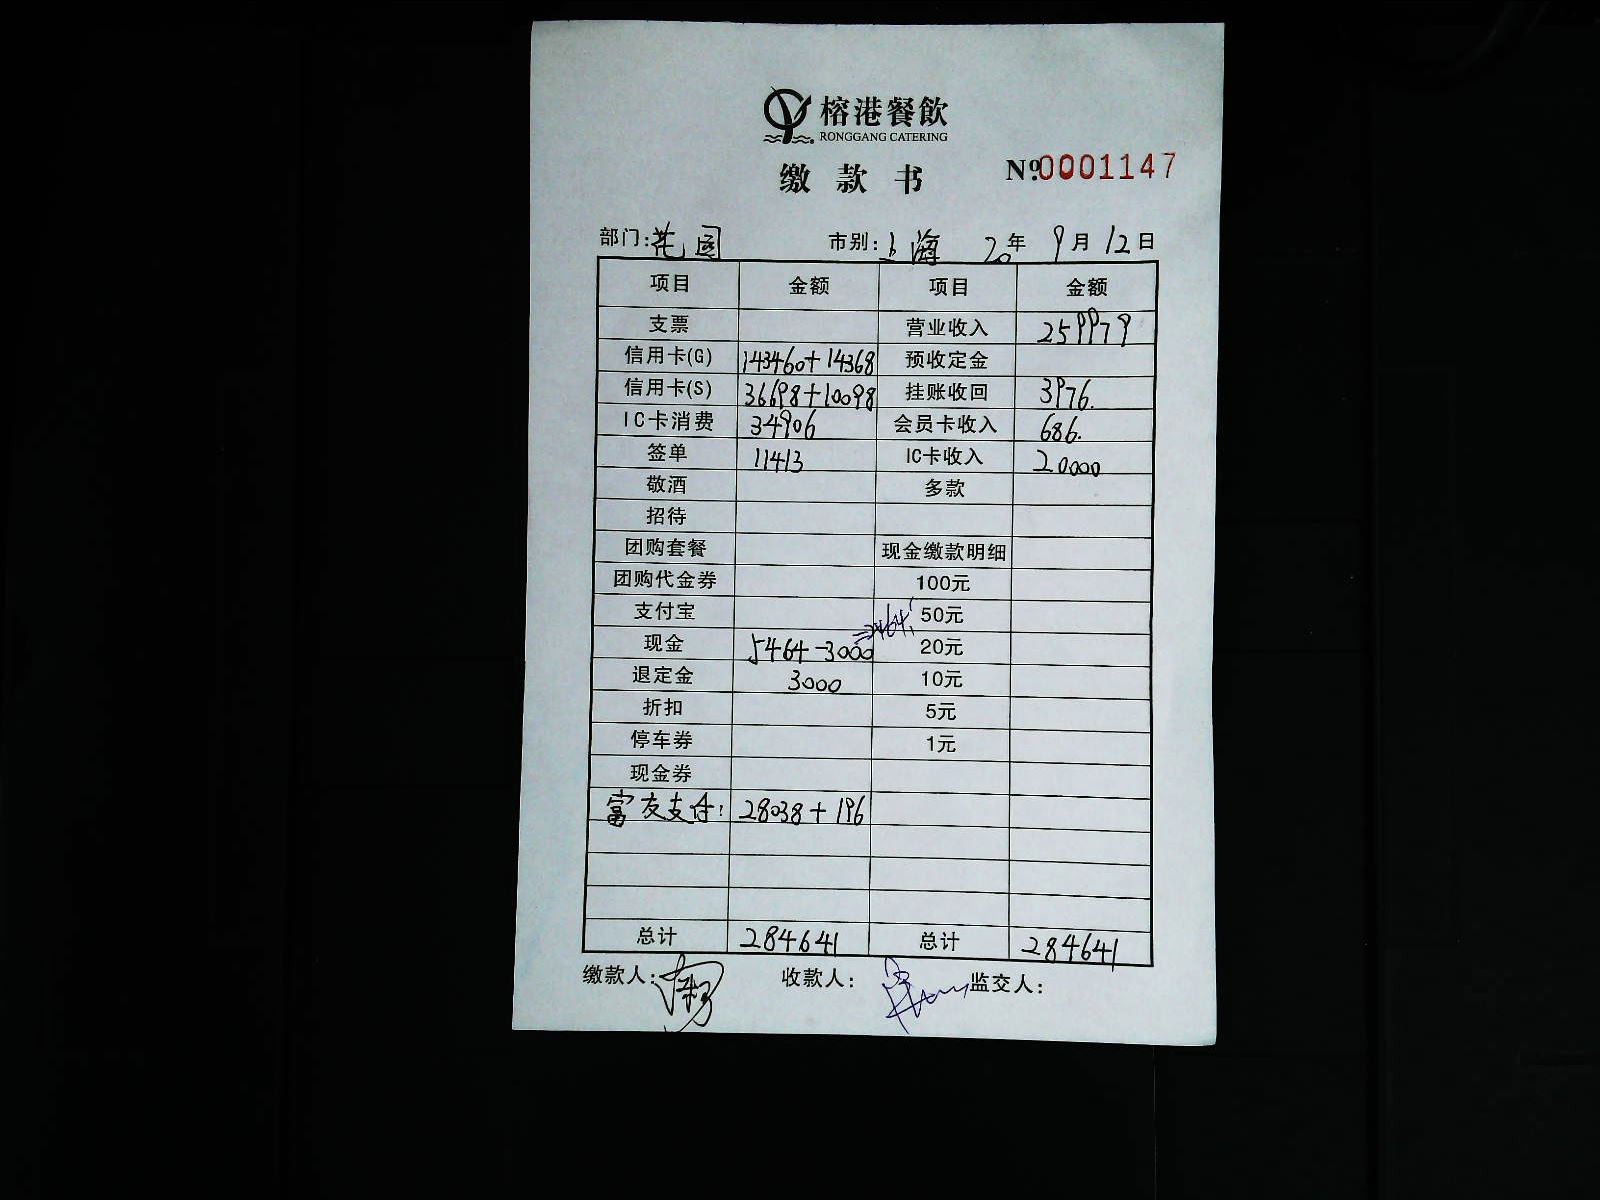 榕港餐飲
RONGGANG CATERING
缴款书 Nº 0001147
部门:花园 市别:上海 20年 9月 12日
项目 金额 项目 金额
支票 营业收入 259979
信用卡(G) 143460+14368 预收定金
信用卡(S) 36698+10098 挂账收回 3976.
IC卡消费 34906 会员卡收入 686.
签单 11413 IC卡收入 20000
敬酒 多款
招待
团购套餐 现金缴款明细
团购代金券 100元
支付宝 50元
现金 5464-3000 =2464. 20元
退定金 3000 10元
折扣 5元
停车券 1元
现金券
富友支付: 28038+196
总计 284641 总计 284641
缴款人: 收款人: 监交人: